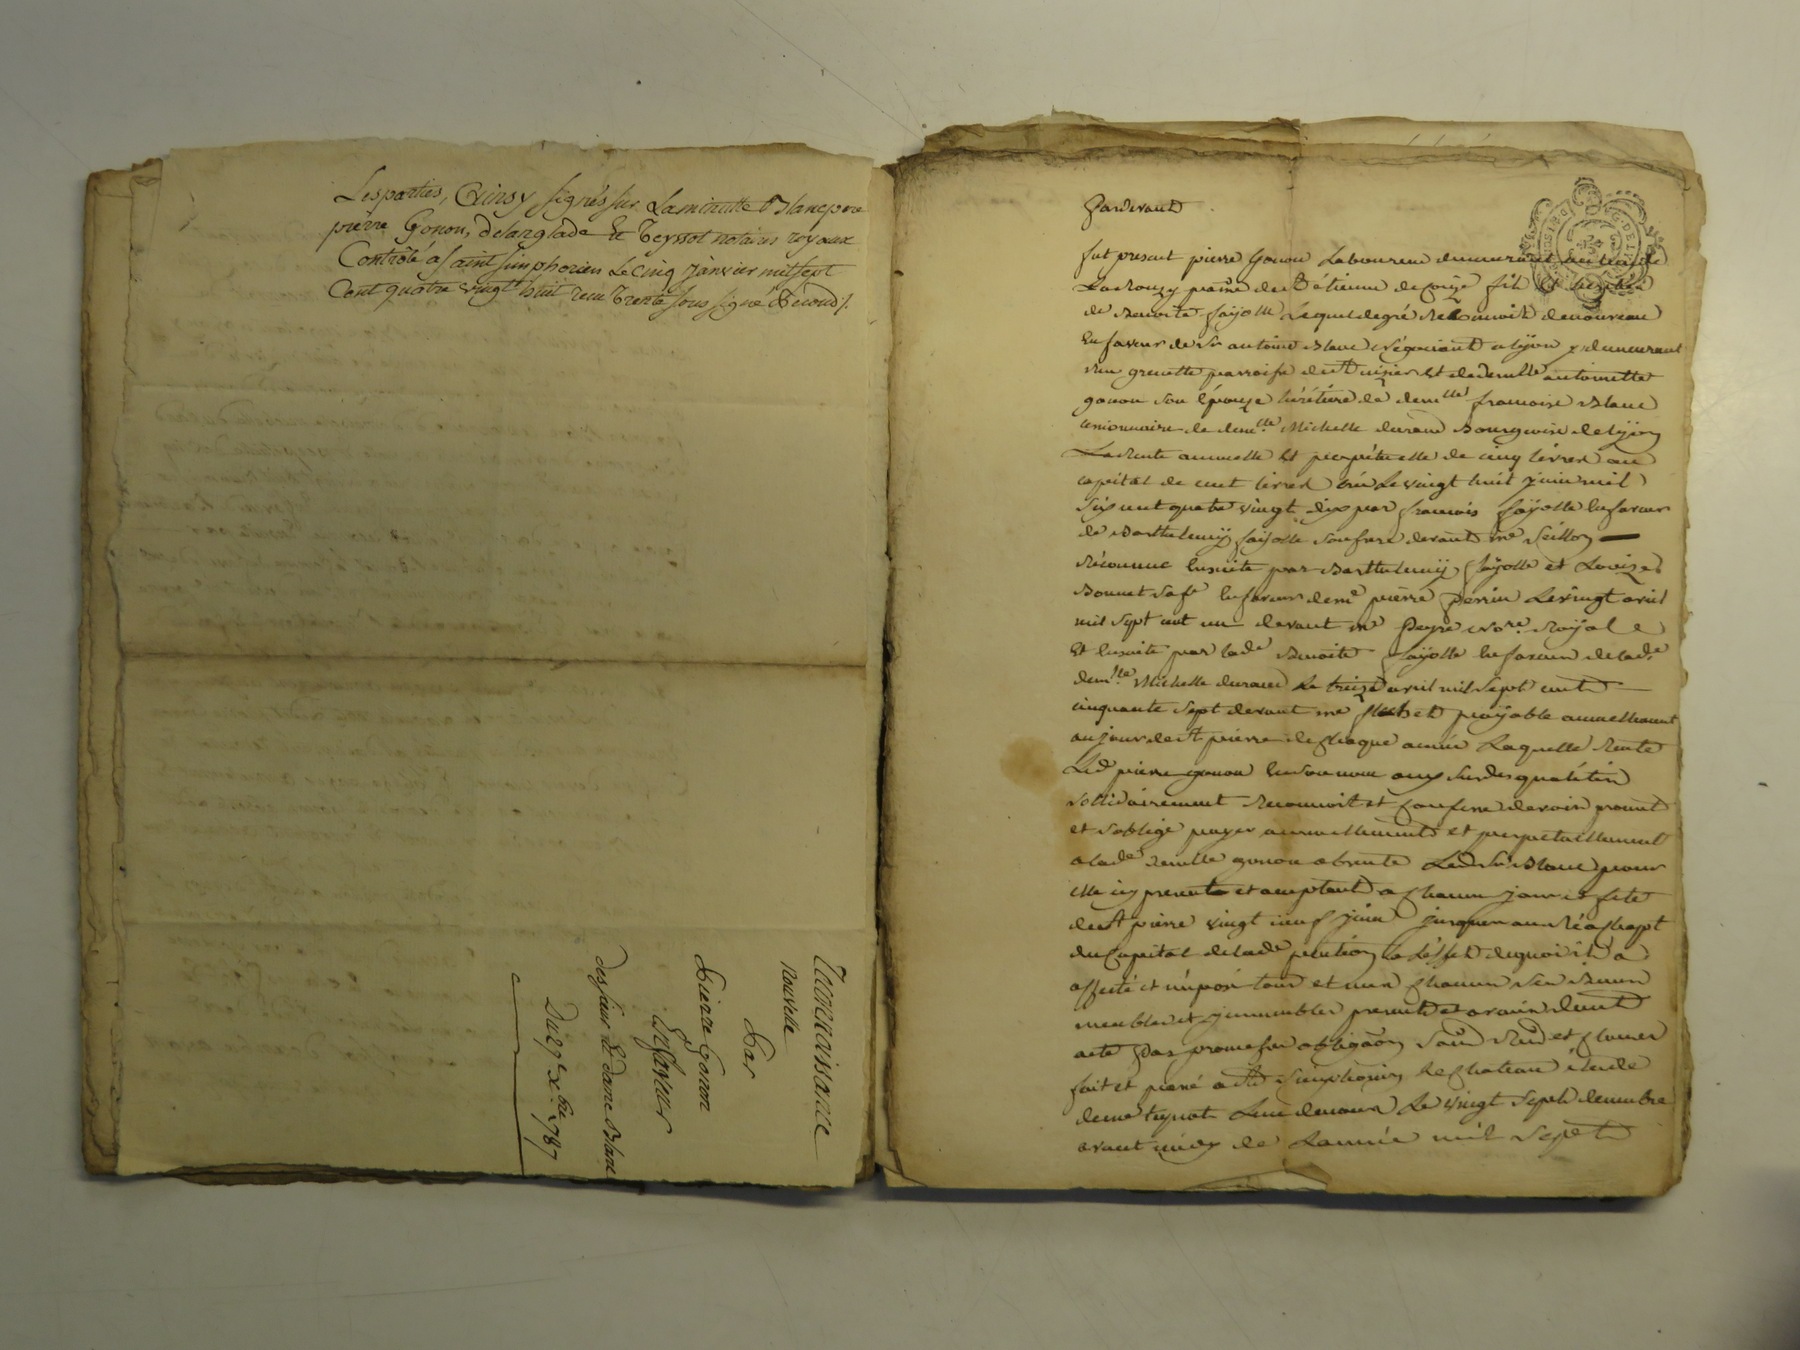 Les parties, Ainsy signés sur la minutte Blanc, pere
pierre Gonon, delanglade et Teyssot notaires royaux
Contrôlé a saint simphorien le cinq janvier mil sept
Cent quatre vingt huit reçu trente sous signé
Reconnoissance
nouvelle
par
pierre Gonon
En faveur
des sieur et dame Blanc
Du 27e xbre 1787
Pardevant
fut present pierre Gonon Laboureur demeurant au
parse de st étienne de fils et
de Benoite fayolle lequel de gré Reconnoit de nouveau
En faveur de sr antoine Blanc négociant a lyon y demeurant
rue grenette parroisse de st nizier et de demlle antoinette
gonon son épouze héritière de demlle francoise Blanc
cessionnaire de demlle Michelle durand Bourgeoise de lyon
La Rente annuelle et perpétuelle de cinq livres au
capital de cent livres créé Le vingt huit juin mil
six cent quatre vingt dix par francois fayolle En faveur
de Barthelemy fayolle son frere devant me
Réconnue Ensuite par Barthelemy fayolle et Louize
Bonnet sa fe En faveur de me pierre perrin Le vingt avril
mil sept cent un devant me Peyre nore Royal
Et Ensuite par lade Benoite fayolle En faveur de lade
demlle Michelle durand Le treize avril mil sept cent
cinquante sept devant me et payable annuellement
au jour de st pierre de chaque année Laquelle Rente
Led pierre gonon En son nom aux susdes qualités
sollidairement Reconnoit et confesse devoir promet
et s'oblige payer annuellement et perpetuellement
a lade demlle gonon absente Led sr Blanc pour
elle icy present et acceptant a chacun jour et fete
de st pierre vingt neuf juin jusques au réachapt
du Capital de lade pention a L'effet de quoi il a
affecté et imposé tous et uns chacuns ses Biens
meubles et immeubles presents et avenir dont
acte Par promesse obligaon soumon Renon et clauses
fait et passé a st simphorien le chateau étude
de me teyssot L'un de nous Le vingt sept decembre
avant midy de L'année mil sept